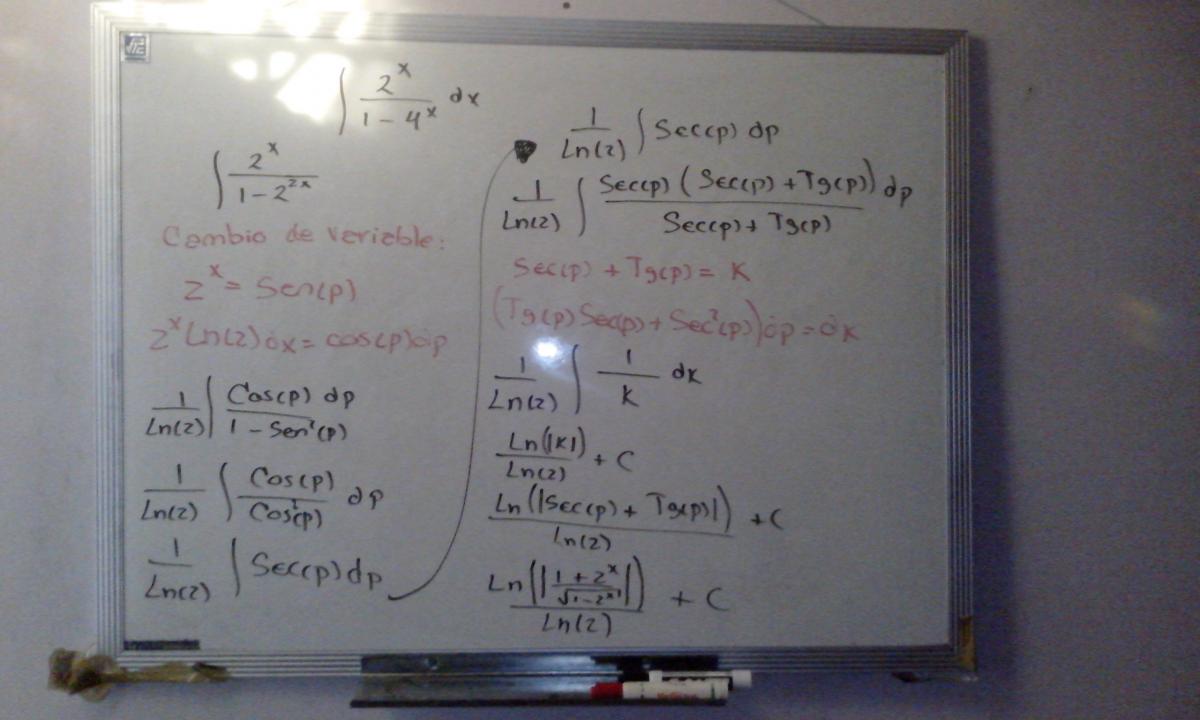 ∫ 2^x / (1 - 4^x) dx
∫ 2^x / (1 - 2^2x)
Cambio de variable:
2^x = Sen(p)
2^x Ln(2) dx = cos(p) dp
1/Ln(2) ∫ Cos(p) dp / (1 - Sen²(p))
1/Ln(2) ∫ Cos(p) / Cos²(p) dp
1/Ln(2) ∫ Sec(p) dp
1/Ln(2) ∫ Sec(p) dp
1/Ln(2) ∫ Sec(p) (Sec(p) + Tg(p)) dp / (Sec(p) + Tg(p))
Sec(p) + Tg(p) = K
(Tg(p) Sec(p) + Sec²(p)) dp = dK
1/Ln(2) ∫ 1/K dK
Ln(|K|) / Ln(2) + C
Ln(|Sec(p) + Tg(p)|) / Ln(2) + C
Ln(|(1 + 2^x) / √(1 - 2^2x)|) / Ln(2) + C